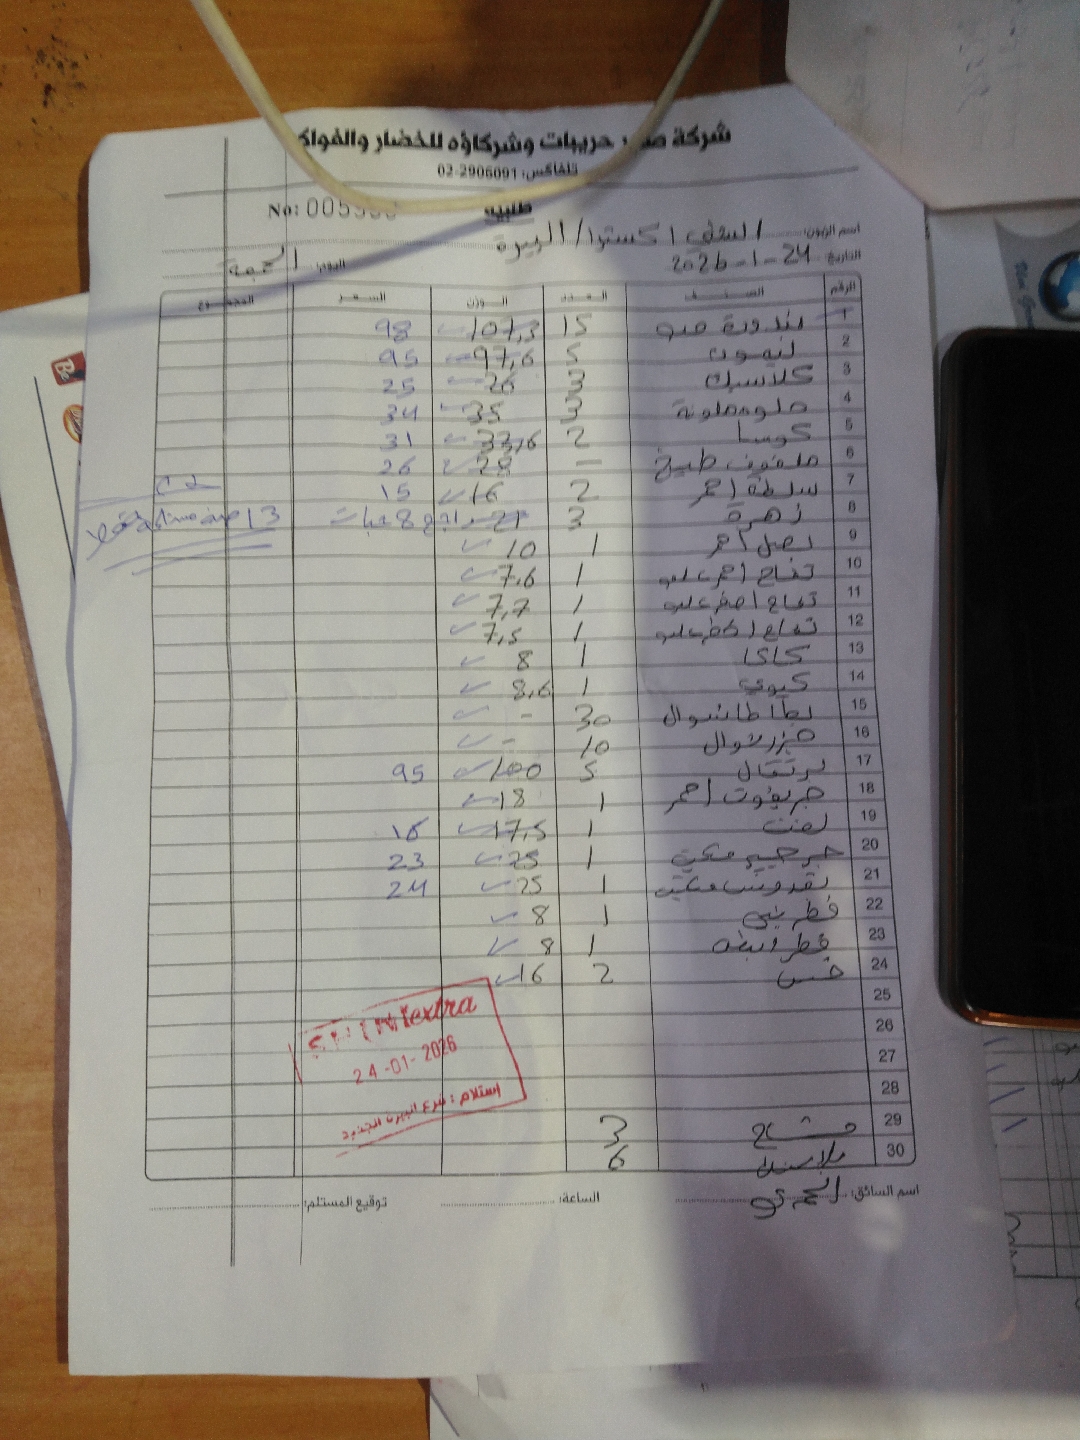 شركة حريبات وشركاؤه للخضار والفواكه
تلفاكس: 02-2906091
No: 005
طلبيه
اسم الزبون: اكسترا / البيرة
التاريخ: 2026-1-24 اليوم: الجمعة
الرقم الصنف العدد الوزن السعر المجموع
1 بندورة 15 107,3 98
2 ليمون 5 97,6 95
3 كلاسيك 3 26 25
4 حلوه ملونة 3 35 34
5 كوسا 2 33,6 31
6 ملفوف طبيخ - 28 26
7 سلطة احمر 2 16 15
8 زهرة 3 21 راجع 8 حبات 13
9 بصل احمر 1 10
10 تفاح احمر علبه 1 7,6
11 تفاح اصفر علبه 1 7,7
12 تفاح اخضر علبه 1 7,5
13 كاكا 1 8
14 كيوي 1 8,6
15 بطاطا شوال 30 -
16 جزر شوال 10 -
17 برتقال 5 100 95
18 جريفوت احمر 1 18
19 لفت 1 17,5 16
20 جرجير 1 25 23
21 بقدونس 1 25 24
22 فطر بني 1 8
23 فطر ابيض 1 8
24 خس 2 16
25
26
27
28
29 مشاح 3
30 بلاستيك 6
extra
24-01-2026
إستلام : فرع البيرة الجديد
اسم السائق: الساعة: توقيع المستلم: